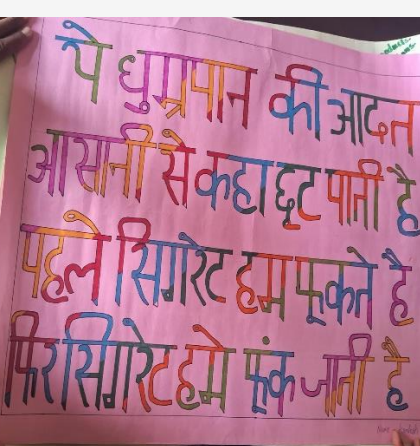 ये धुम्रपान की आदत
आसानी से कहा छुट पाती है
पहले सिगरेट हम फूकते है
फिर सिगरेट हमे फूंक जाती है